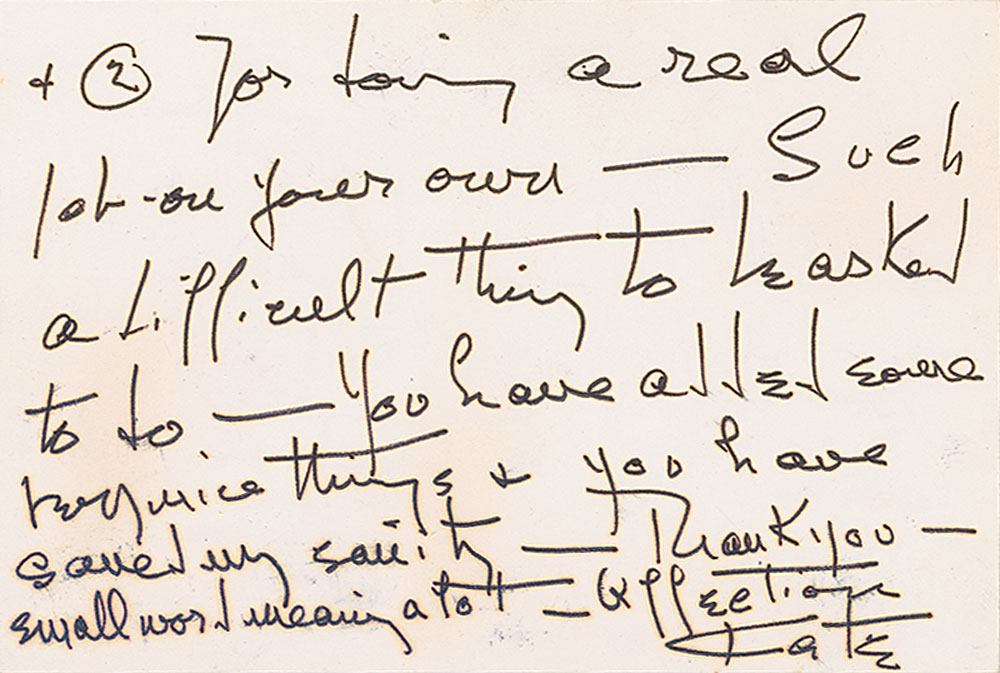 + ② For doing a real
job - on your own — Such
a difficult thing to be asked
to do — You have added some
very nice things & you have
saved my sanity — Thank you —
small word meaning a lot — Affection
Kate